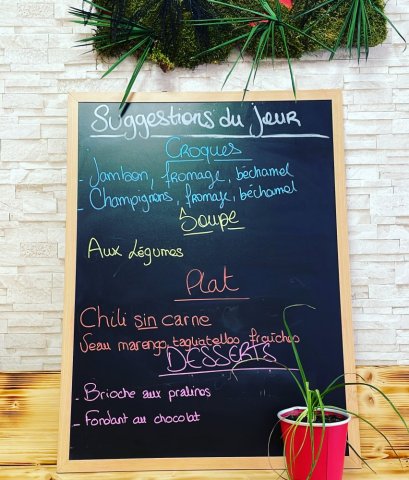 Suggestions du jour
Croques
- Jambon, fromage, béchamel
- Champignons, fromage, béchamel
Soupe
Aux Légumes
Plat
Chili sin carne
Veau marengo, tagliatelles fraîches
DESSERTS
- Brioche aux pralines
- Fondant au chocolat